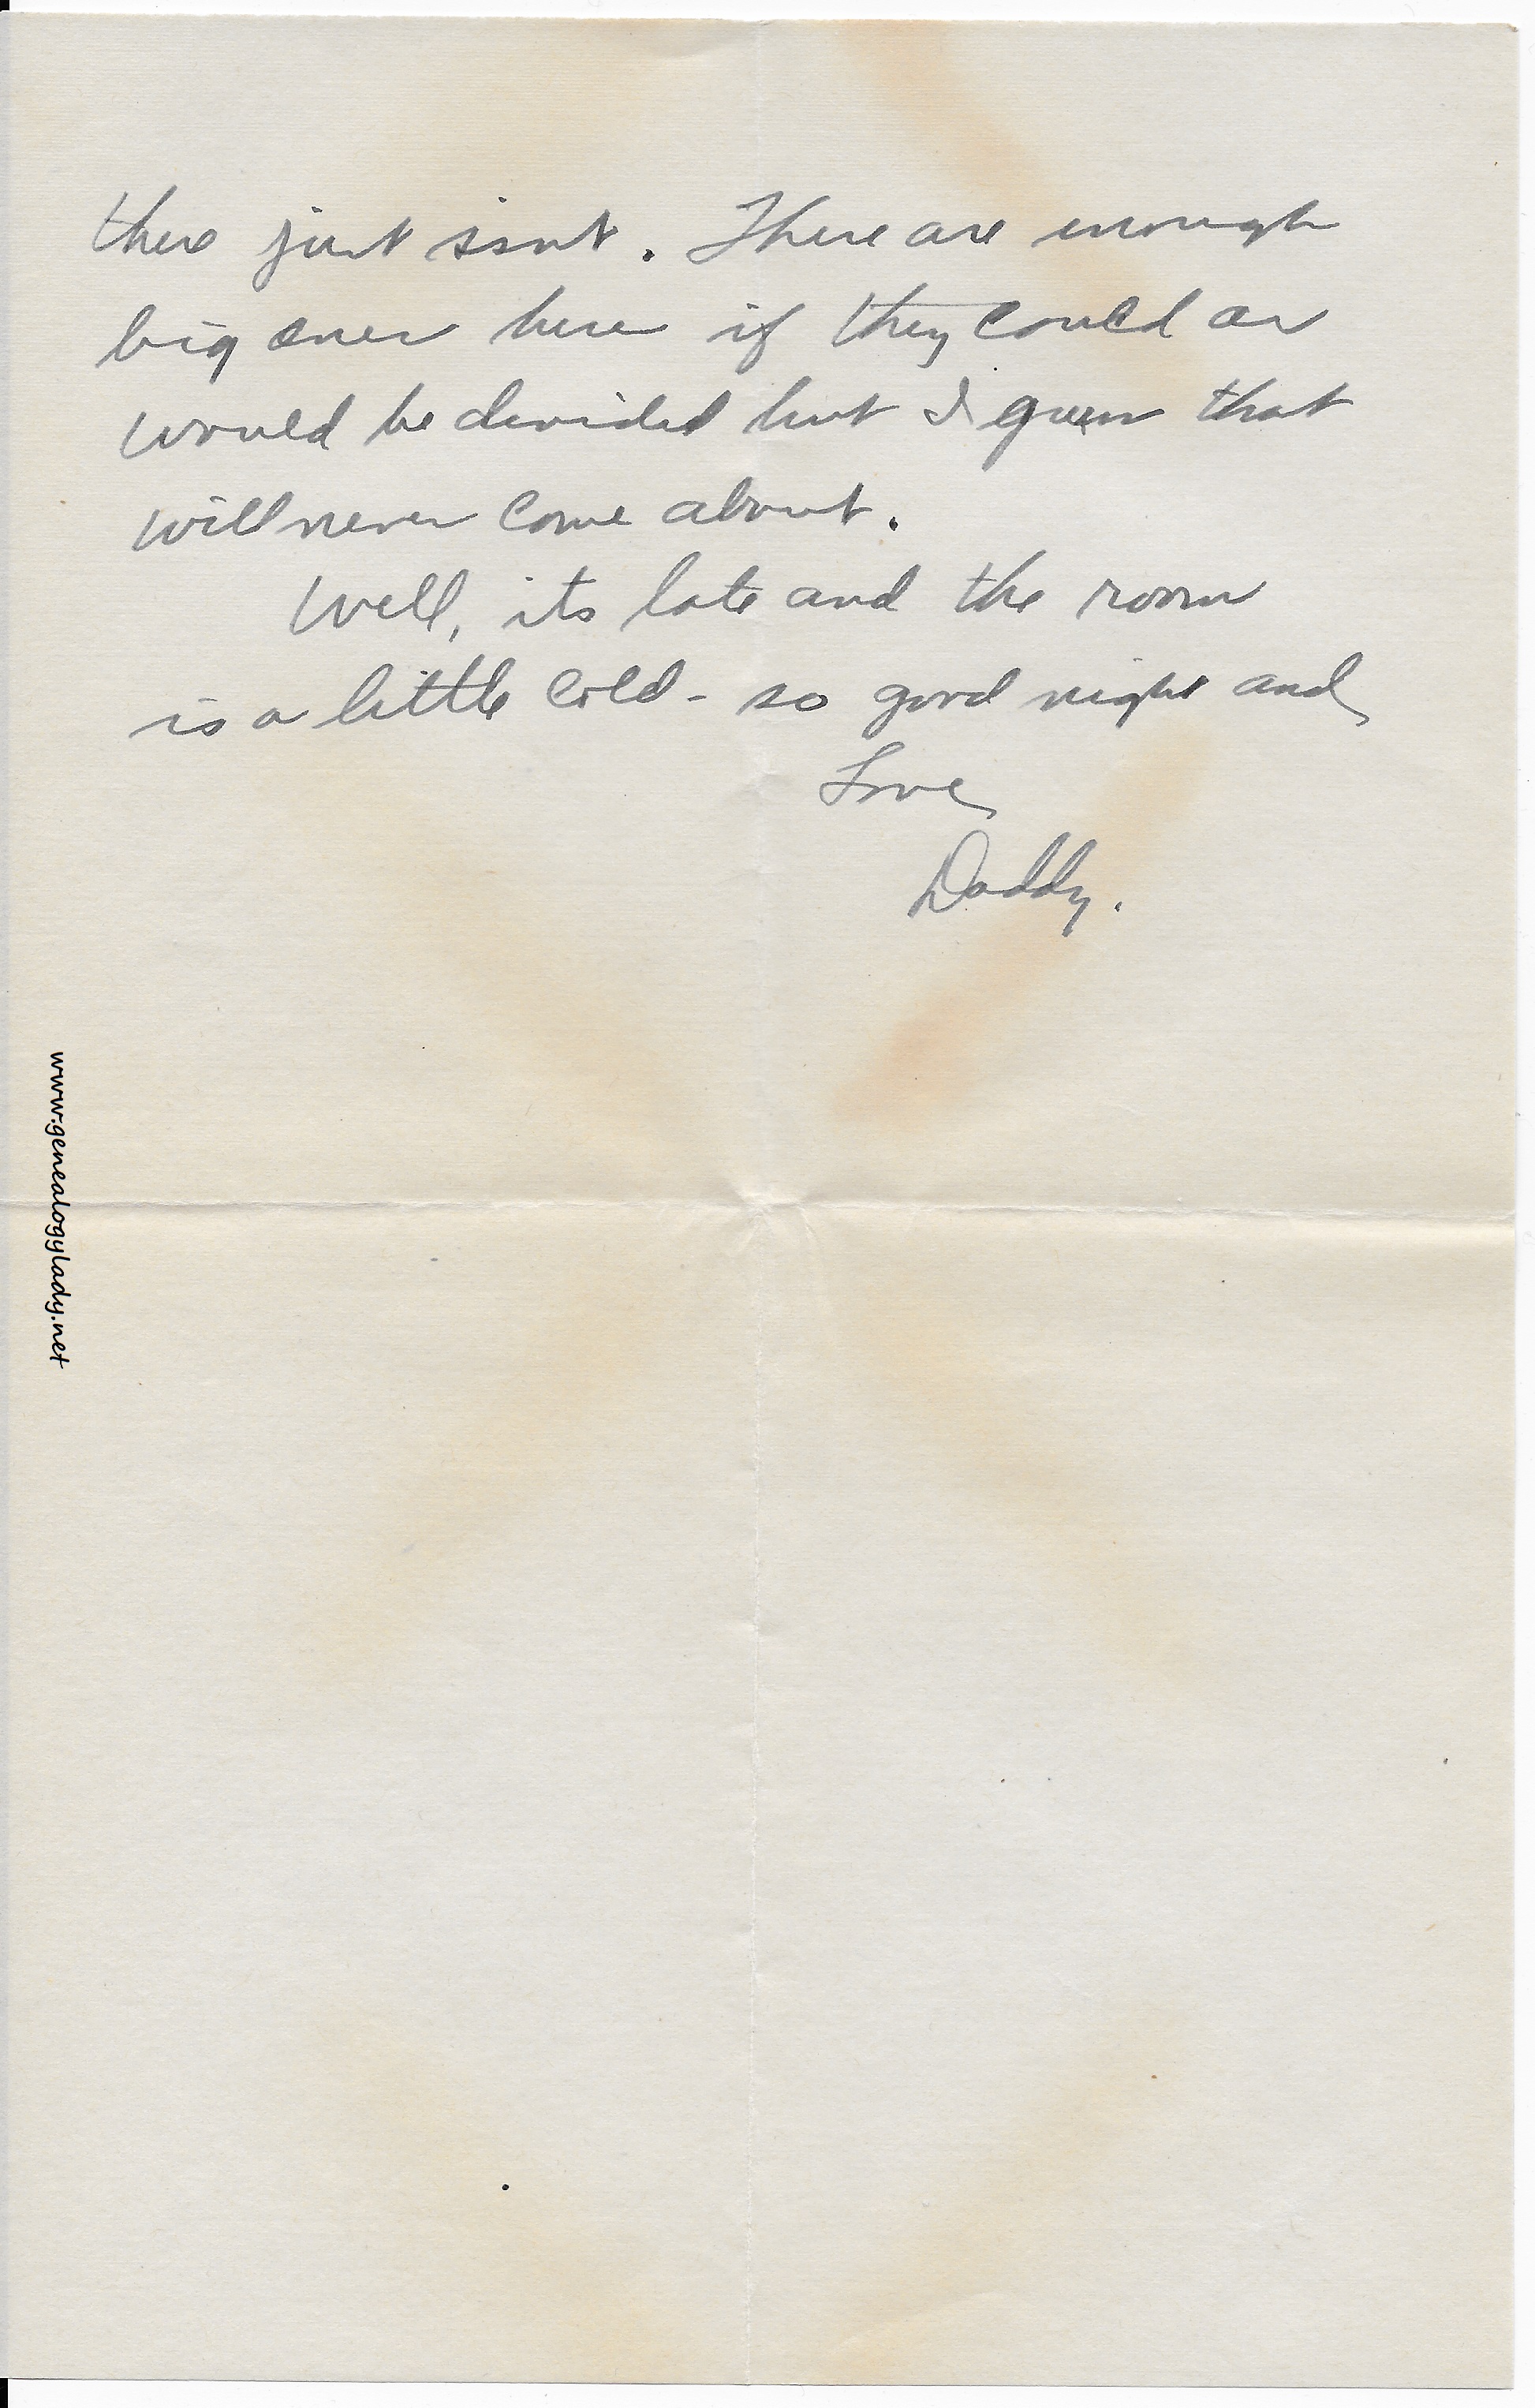 there just isnt. There are enough
big ones here if they could or
would be divided but I guess that
will never come about.
Well, its late and the room
is a little cold - so good night and
Love
Daddy.
www.genealogylady.net